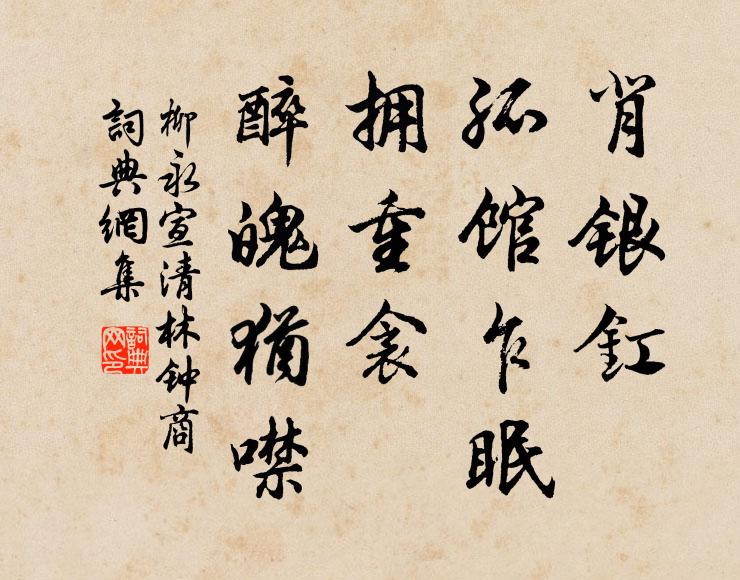 背银釭
孤馆乍眠
拥重衾
醉魄猶噤
柳永宣清林钟商
詞典網集
詞典网印